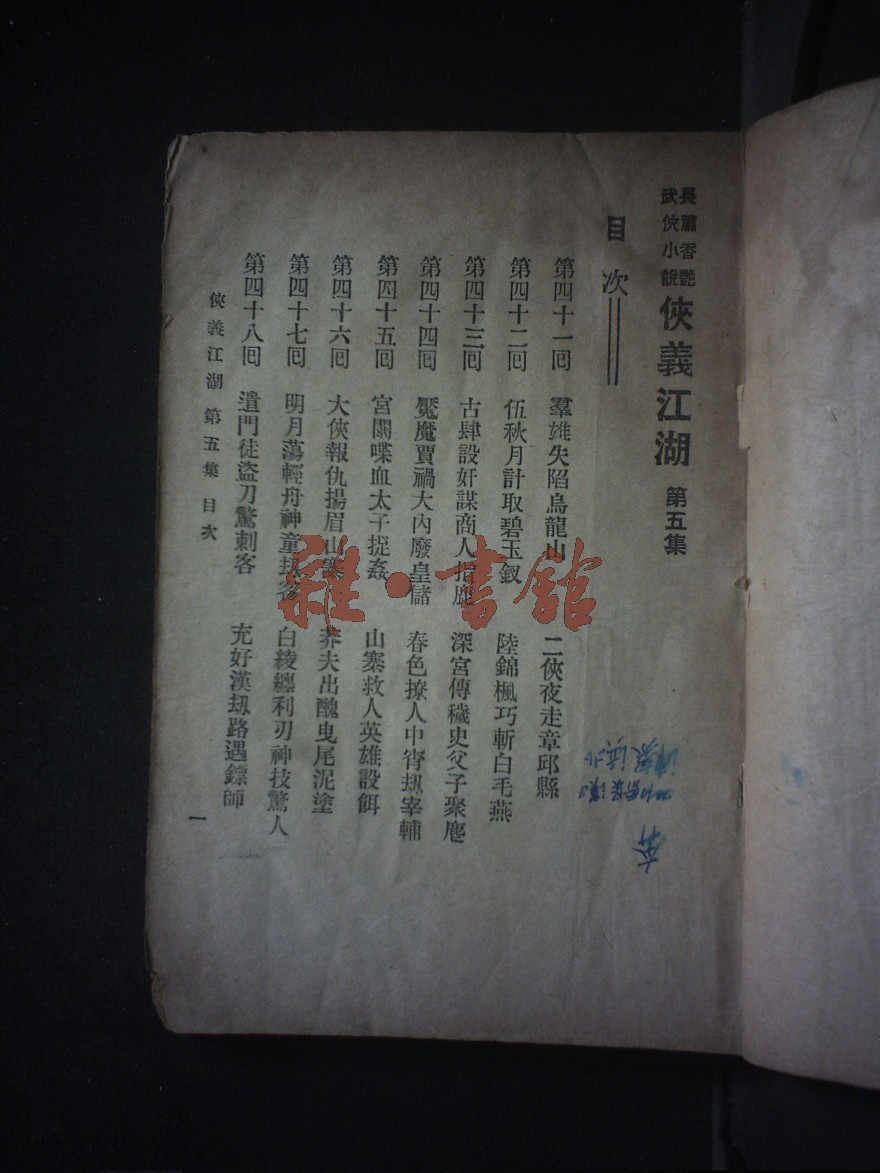 長篇香艷
武俠小說
俠義江湖 第五集
目次
第四十一回 羣雄失陷烏龍山 二俠夜走章邱縣
第四十二回 伍秋月計取碧玉釵 陸錦楓巧斬白毛燕
第四十三回 古肆設奸謀商人指鹿 深宮傳穢史父子聚麀
第四十四回 魘魔賈禍大內廢皇儲 春色撩人中宵刼宰輔
第四十五回 宮闈喋血太子捉姦 山寨救人英雄設餌
第四十六回 大俠報仇揚眉山寨 莽夫出醜曳尾泥塗
第四十七回 明月蕩輕舟神童刼 白綾纏利刃神技驚人
第四十八回 遣門徒盜刀驚刺客 充好漢刼路遇鏢師
俠義江湖 第五集 目次
一
雜·書館